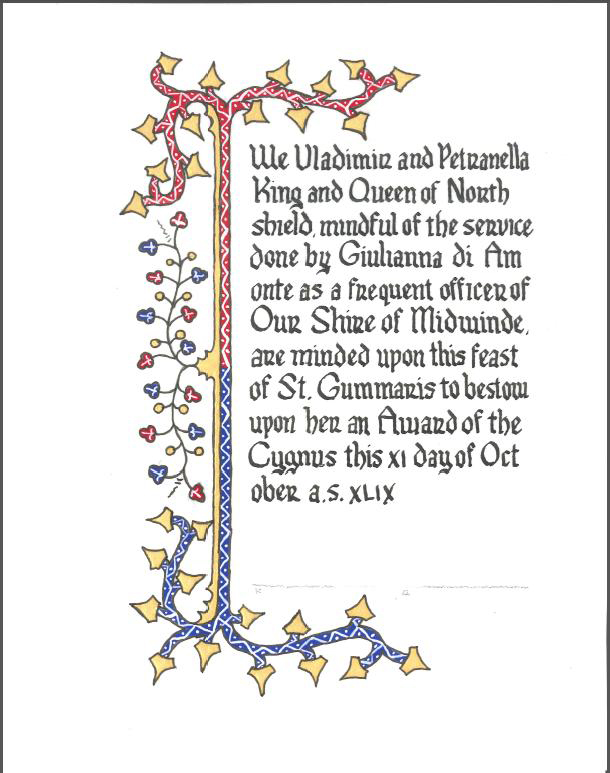 We Vladimir and Petranella
King and Queen of North
shield, mindful of the service
done by Giulianna di Am
onte as a frequent officer of
Our Shire of Midwinde,
are minded upon this feast
of St. Gummaris to bestow
upon her an Award of the
Cygnus this xi day of Oct
ober a.s. XLIX
K
Q